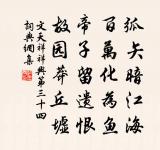 弧矢暗江海
百萬化為魚
帝子留遺恨
故园莽丘墟
文天祥祥興第三十四
詞典網集